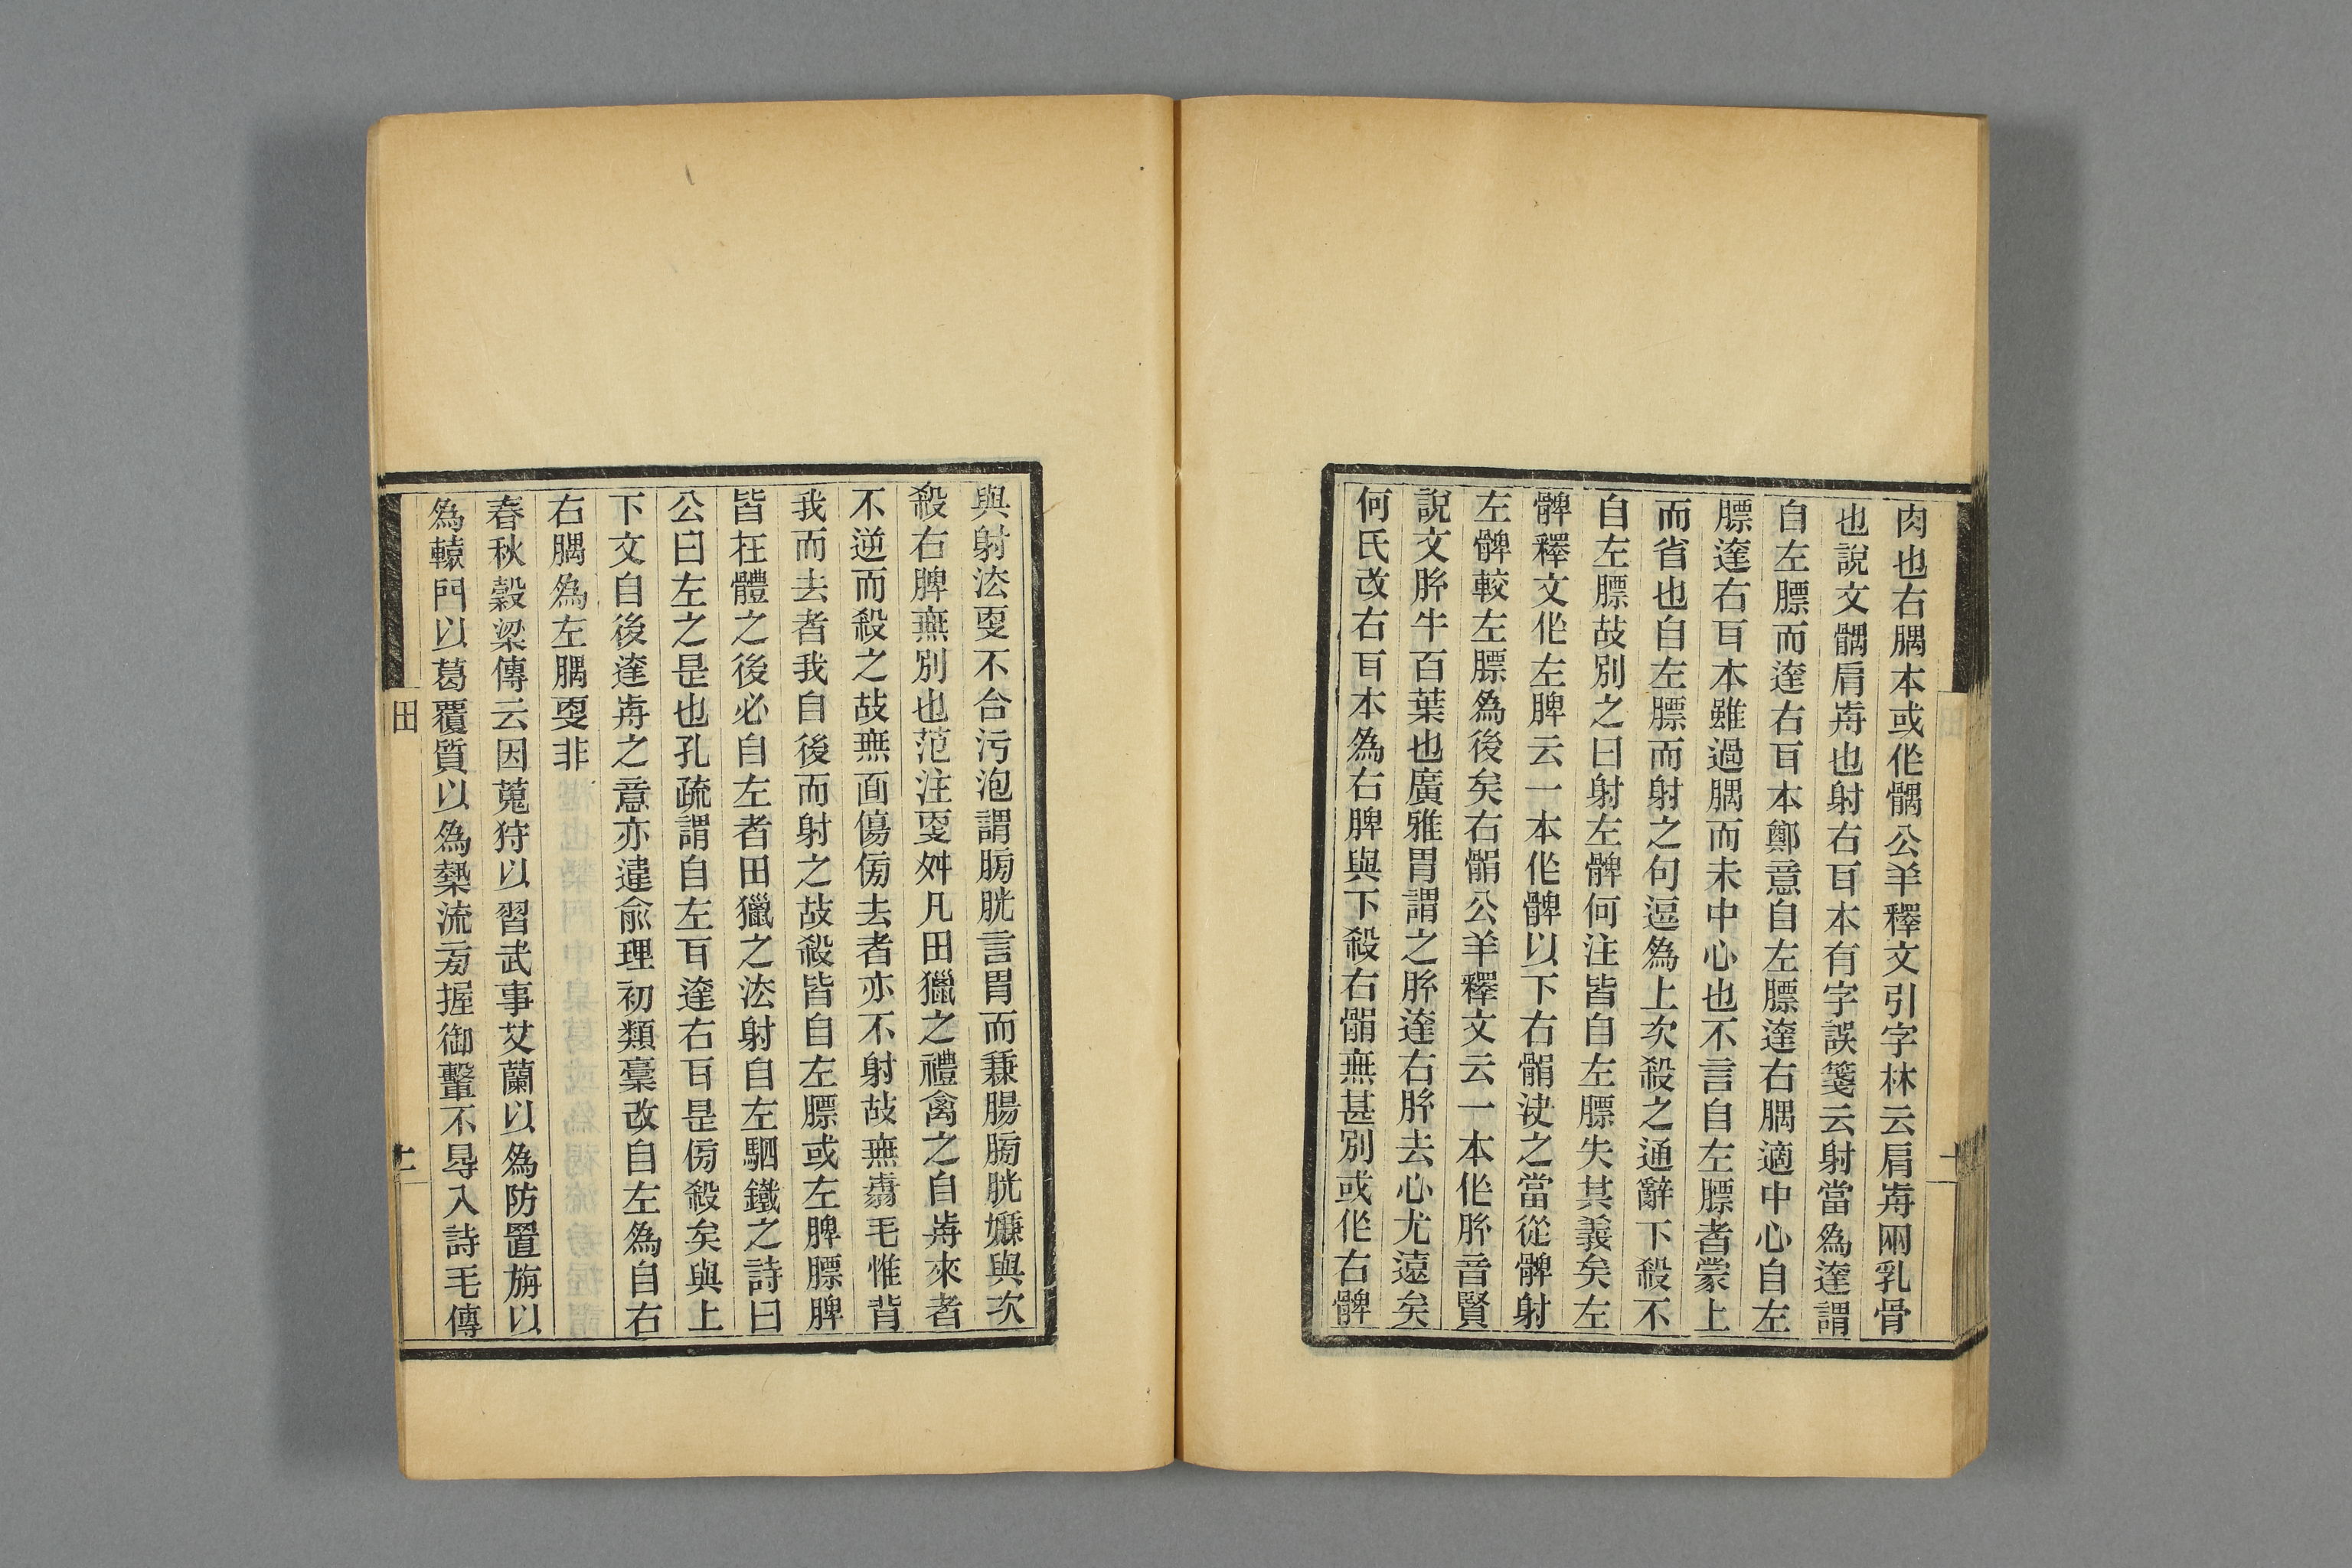 肉也右腢本或作髃公羊釋文引字林云肩歬兩乳骨
也說文髃肩歬也射右耳本有字誤箋云射當爲達謂
自左膘而達右耳本鄭意自左膘達右腢適中心自左
膘達右耳本雖過腢而未中心也不言自左膘者蒙上
而省也自左膘而射之句逗爲上次殺之通辭下殺不
自左膘故別之曰射左髀何注皆自左膘失其義矣左
髀釋文作左脾云一本作髀以下右䯚決之當從髀射
左髀較左膘爲後矣右䯚公羊釋文云一本作胘音賢
說文胘牛百葉也廣雅胃謂之胘達右胘去心尤遠矣
何氏改右耳本爲右脾與下殺右䯚無甚別或作右髀
與射法叓不合污泡謂膀胱言胃而兼腸膀胱嫌與次
殺右脾無別也范注叓舛凡田獵之禮禽之自歬來者
不逆而殺之故無面傷傍去者亦不射故無翦毛惟背
我而去者我自後而射之故殺皆自左膘或左脾膘脾
皆在體之後必自左者田獵之法射自左駟鐵之詩曰
公曰左之是也孔疏謂自左耳達右耳是傍殺矣與上
下文自後達歬之意亦違俞理初類稾改自左爲自右
右腢爲左腢叓非
春秋穀梁傳云因蒐狩以習武事艾蘭以爲防置旃以
爲轅門以葛覆質以爲槷流旁握御轚不得入詩毛傳
田